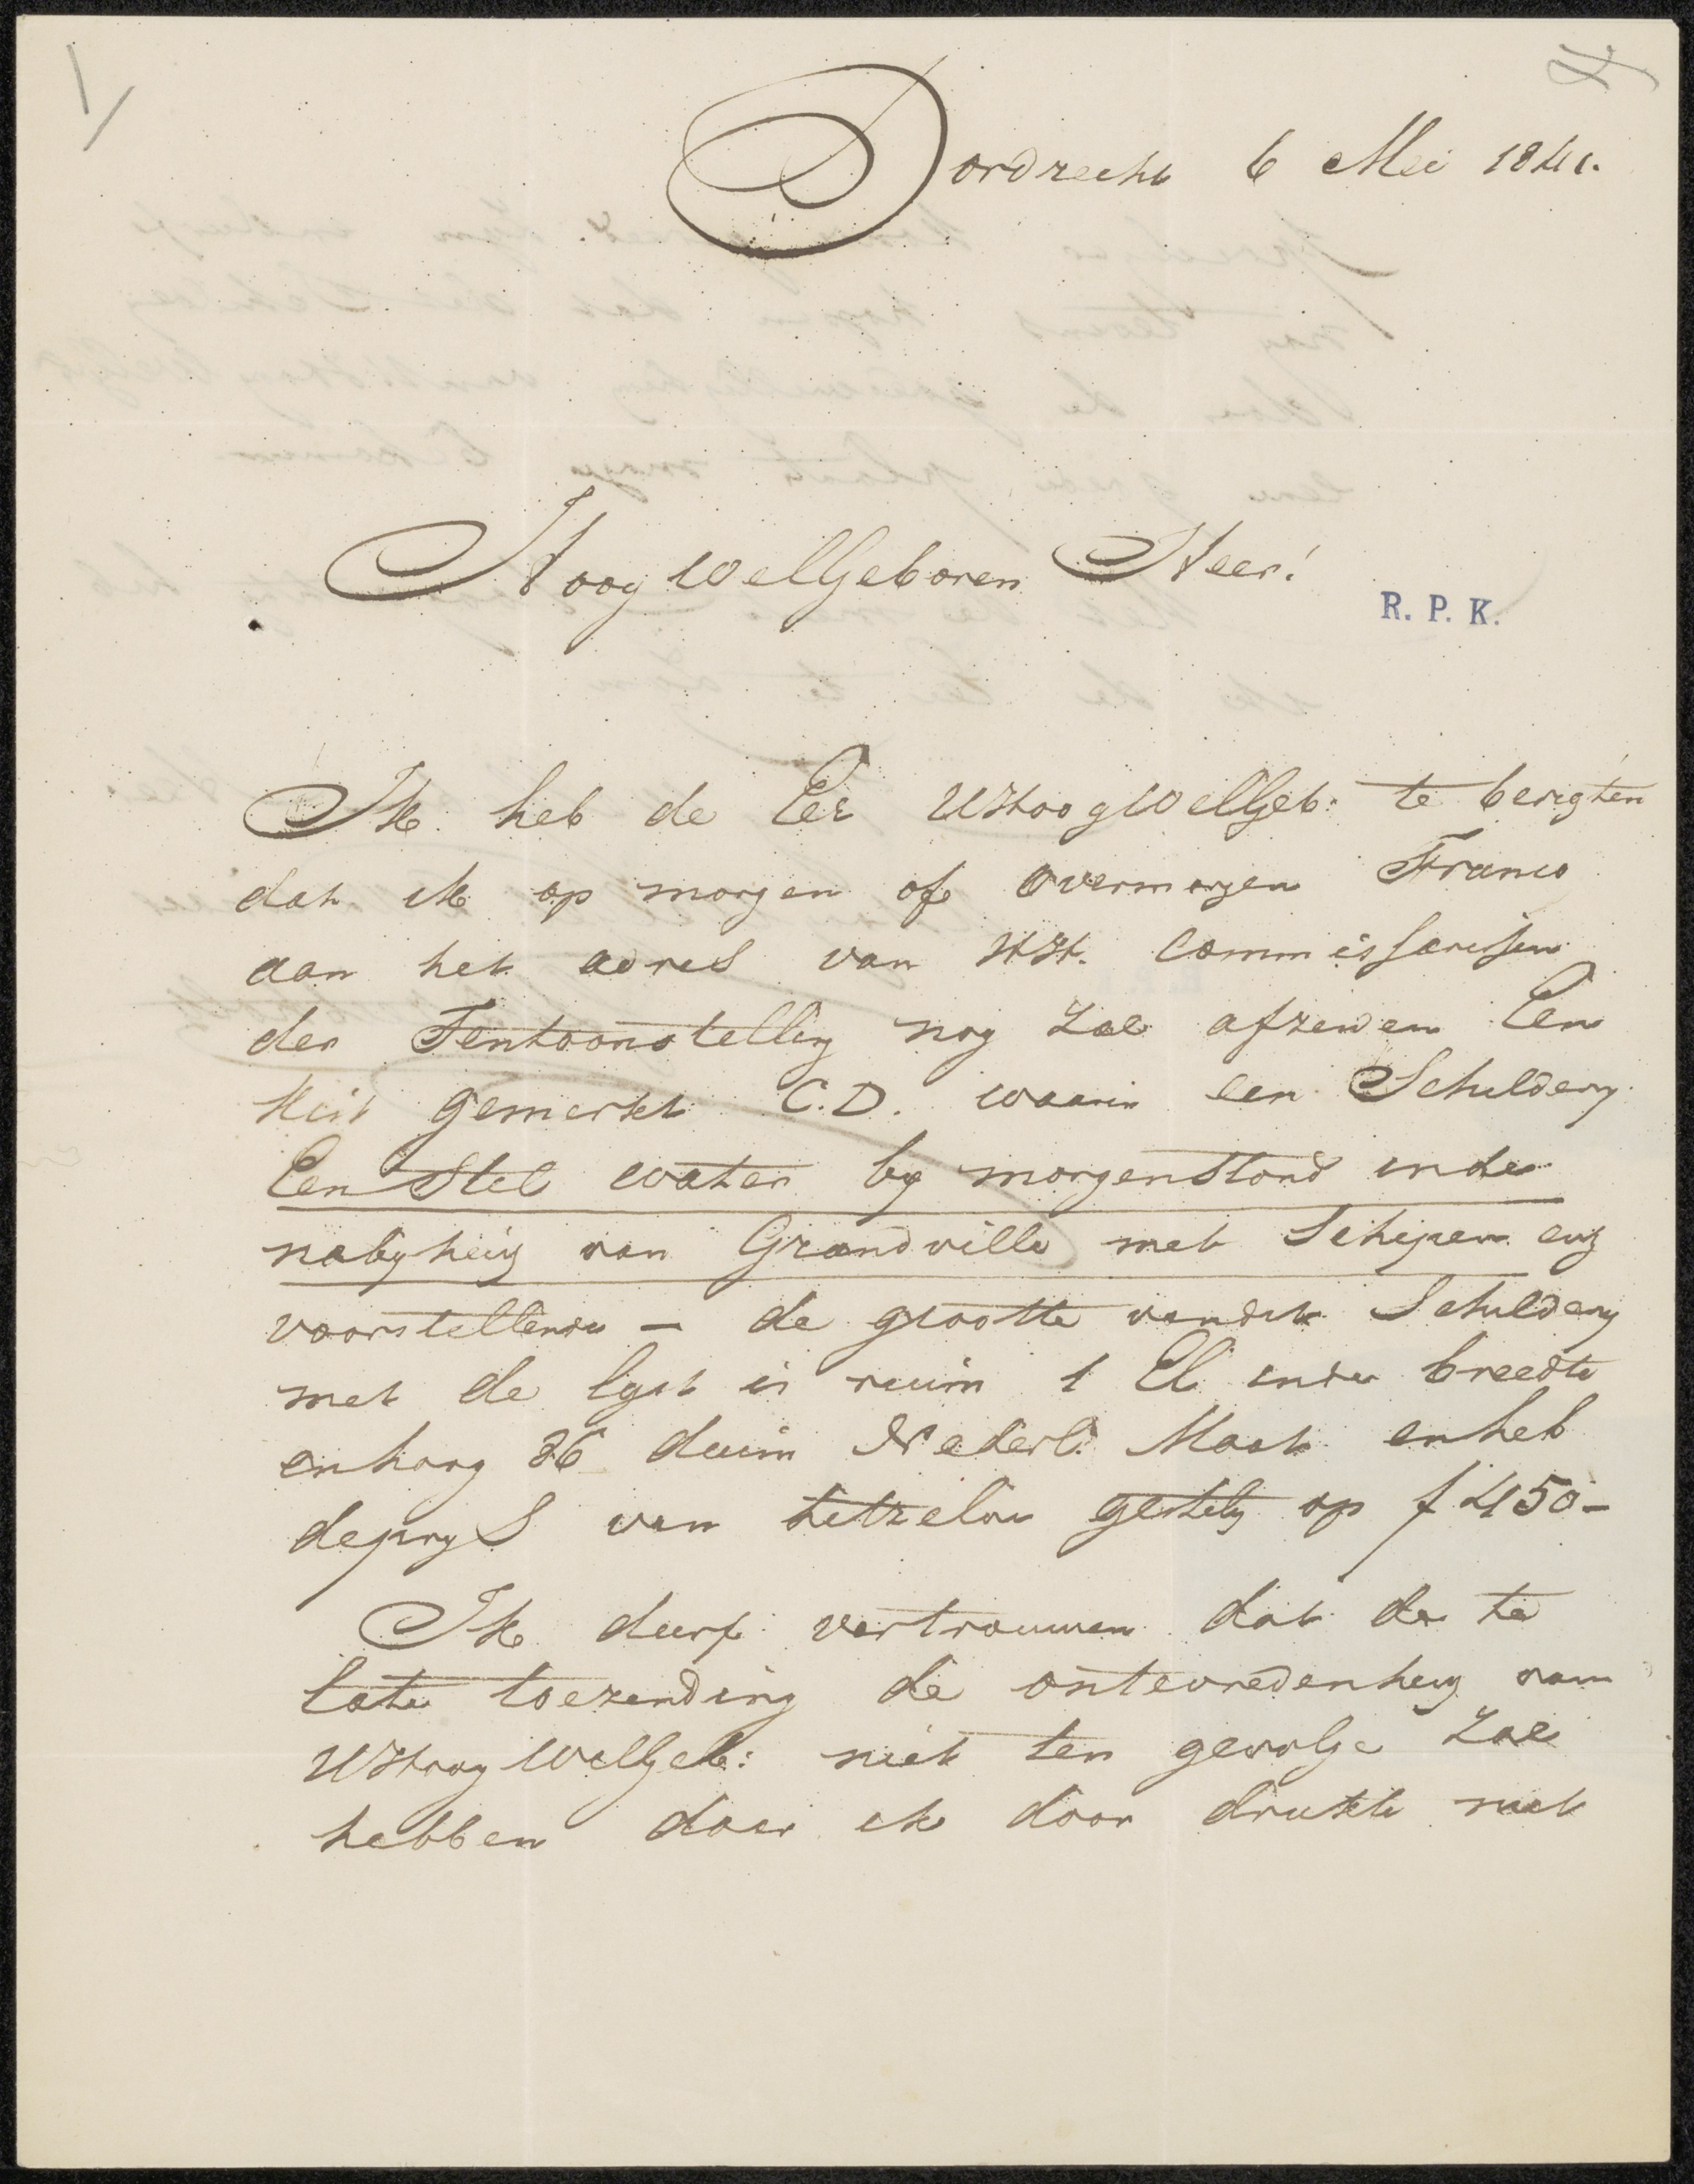 Dordrecht 6 Mei 1841.
HoogWelGeboren Heer!
R. P. K.
Ik heb de Eer UHoogWelGeb: te berigten
dat ik op morgen of overmorgen Franco
aan het adres van HH. Commissarissen
der Tentoonstelling nog zal afzenden Een
Kist gemerkt C.D. waarin een Schildery
Een Stil water by morgenstond in de
nabyheid van Grandville met Schepen enz
voorstellende — de grootte van dit Schildery
met de lyst is ruim 1 El in de breedte
en hoog 86 duim Nederl: Maat en heb
de prys van hetzelve gesteld op f 450-
Ik durf vertrouwen dat de te
late toezending de ontevredenheid van
UHoogWelGeb: niet ten gevolge zal
hebben daar ik door drukte niet